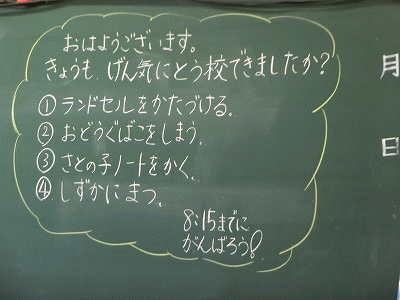 おはようございます。
きょうも、げん気にとう校できましたか?
① ランドセルをかたづける。
② おどうぐばこをしまう。
③ さとの子ノートをかく。
④ しずかにまつ。
8:15までに
がんばろう!
月
日